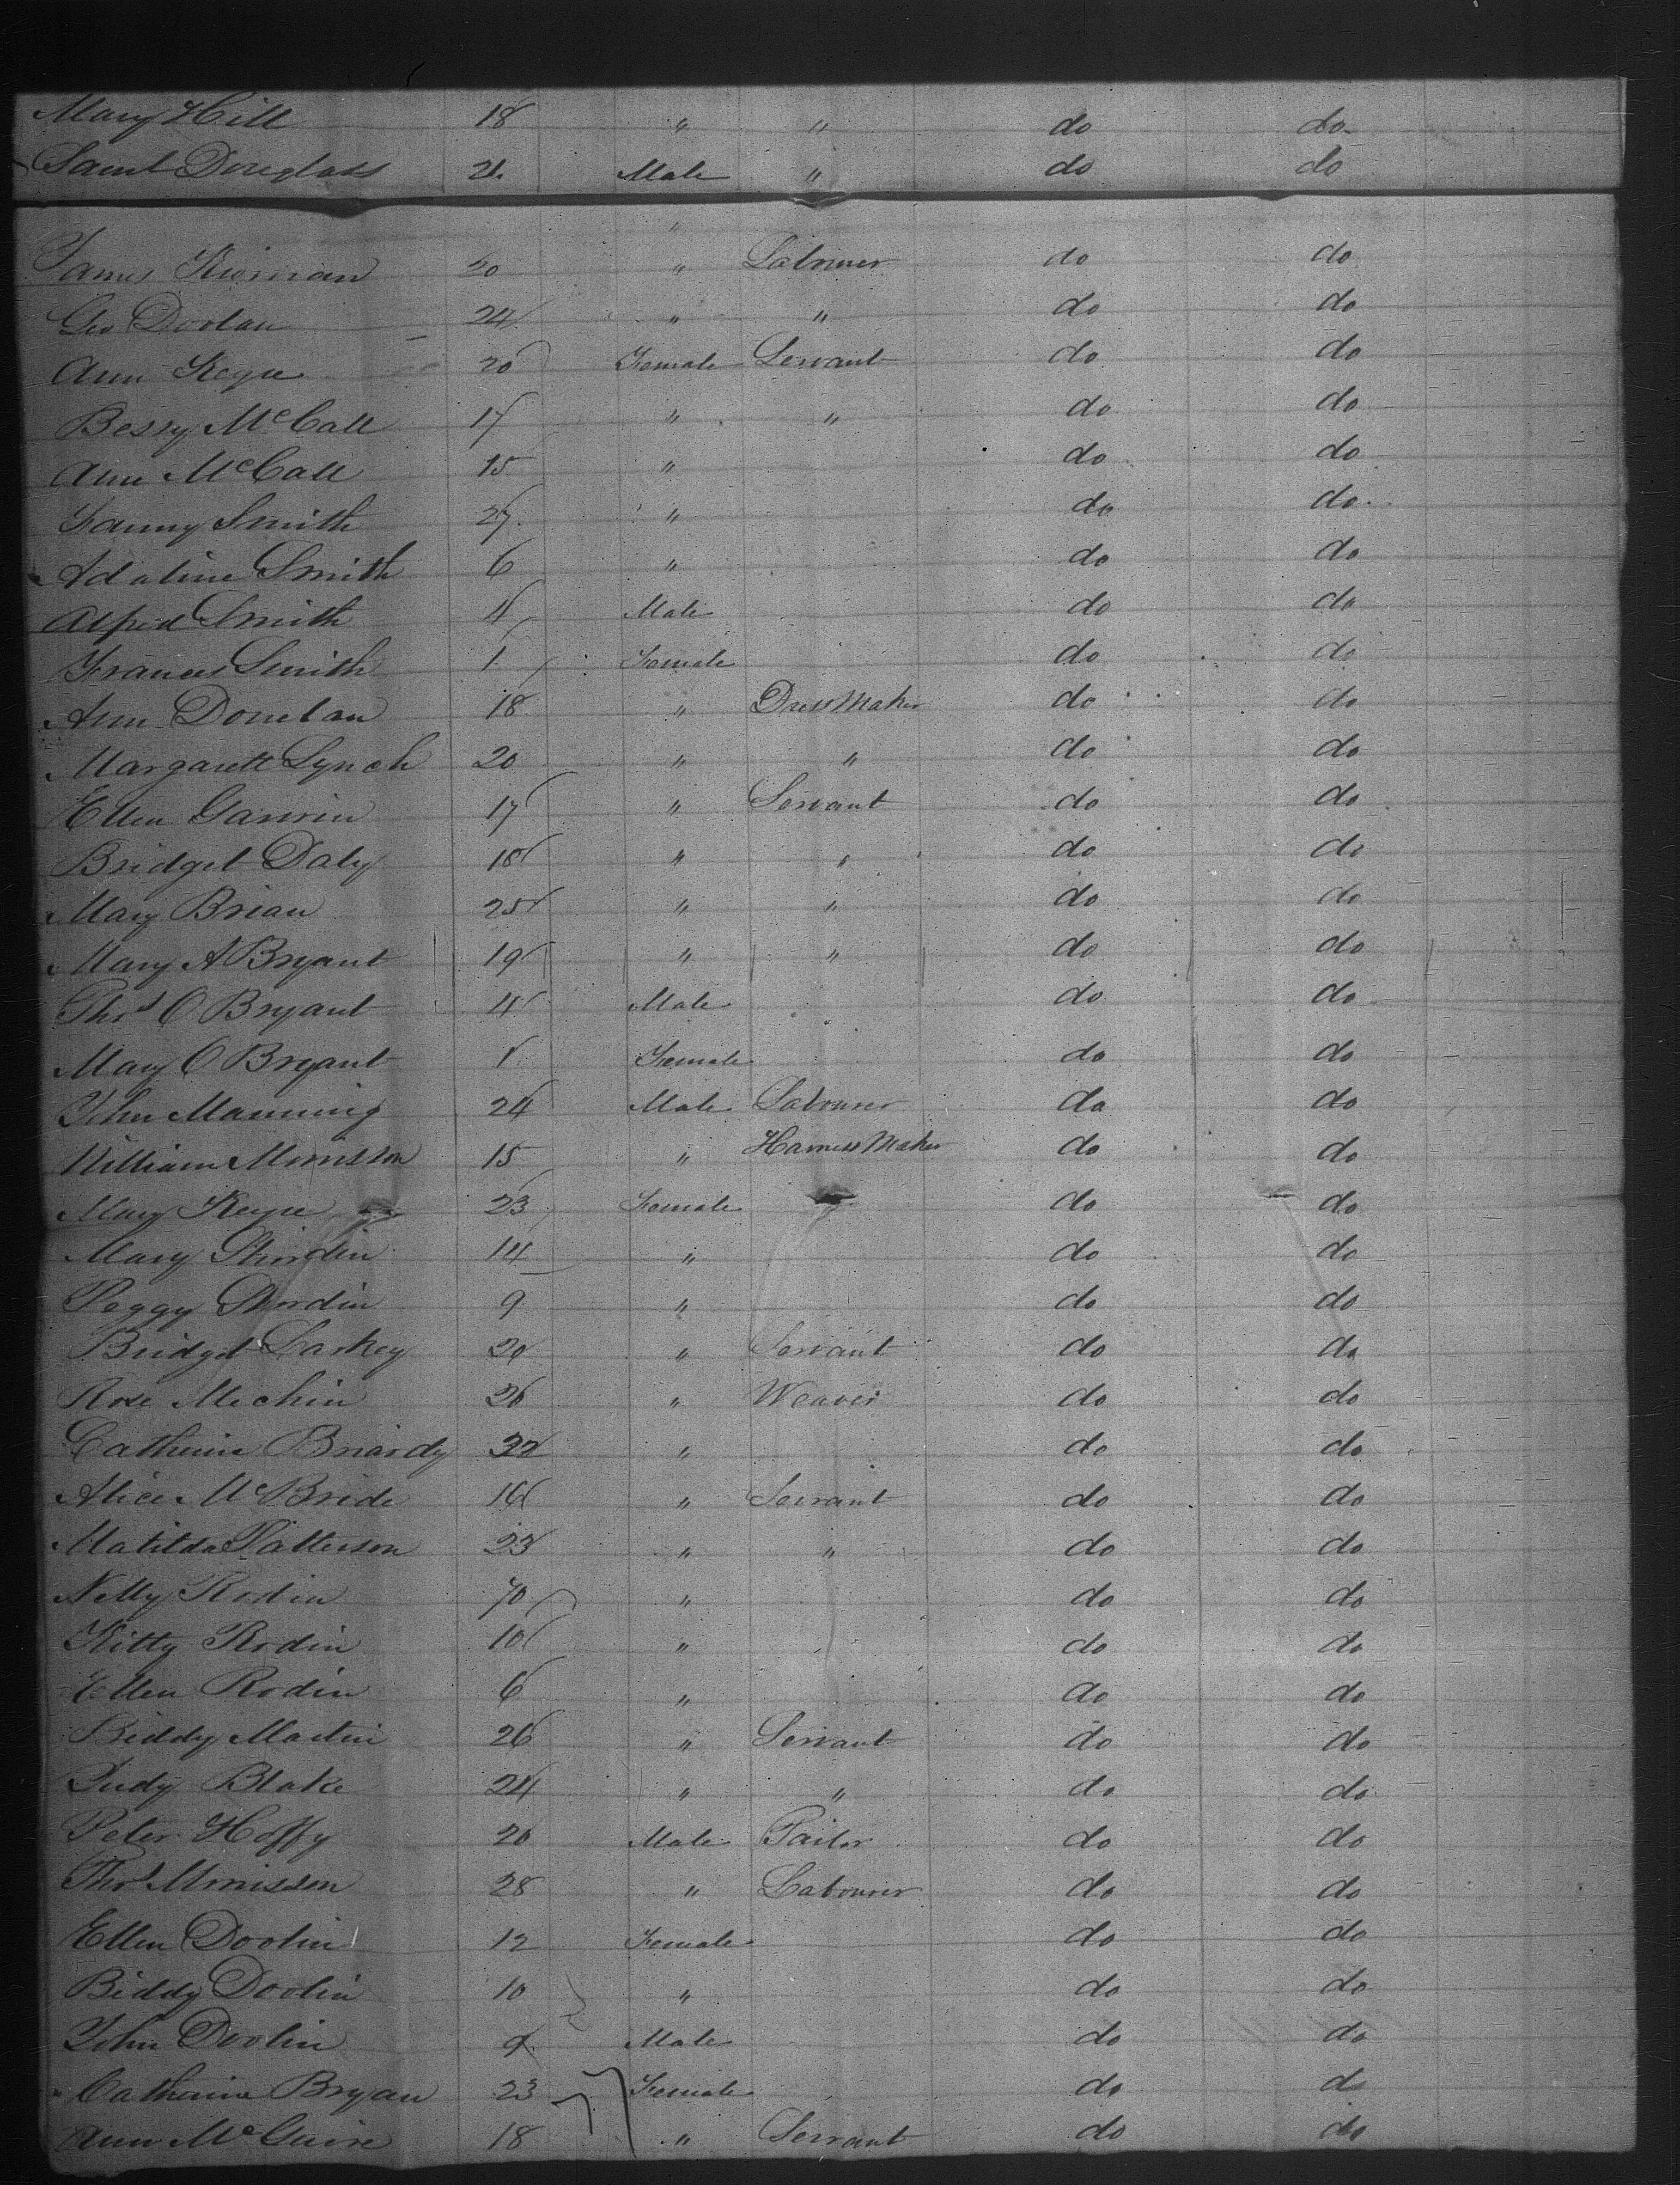 Mary Hill 18 " " do do
Saml Douglass 21 Male " do do
"
James Kiernan 20 " Labourer do do
Geo Doolan 24 " " do do
Ann Keyne 20 Female Servant do do
Bessy McCall 17 " " do do
Ann McCall 15 " do do
Fanny Smith 27 " do do
Adaline Smith 6 " do do
Alfred Smith 4 Male do do
Frances Smith 1 Female do do
Ann Donelan 18 " Dress Maker do do
Margarett Lynch 20 " " do do
Ellen Garvin 17 " Servant do do
Bridget Daly 18 " " do do
Mary Brian 25 " " do do
Mary A Bryant 19 " " do do
Thos O Bryant 4 Male do do
Mary O Bryant 1 Female do do
John Manning 24 Male Labourer do do
William Morrisson 15 " Harness Maker do do
Mary Keyne 23 Female do do
Mary 14 " do do
Peggy 9 " do do
Bridget Larkey 20 " Servant do do
Rose Mechin 26 " Weaver do do
Catherine Briardy 22 " do do
Alice McBride 16 " Servant do do
Matilda Patterson 23 " " do do
Nelly Rodin 70 " do do
Kitty Rodin 10 " do do
Ellen Rodin 6 " do do
Biddy Martin 26 " Servant do do
Judy Blake 24 " " do do
Peter Hoffy 20 Male Tailor do do
Thos Morrisson 28 " Labourer do do
Ellen Doolin 12 Female do do
Biddy Doolin 10 " do do
John Doolin 9 Male do do
Catherine Bryan 23 Female do d
Ann McGuire 18 " Servant do do